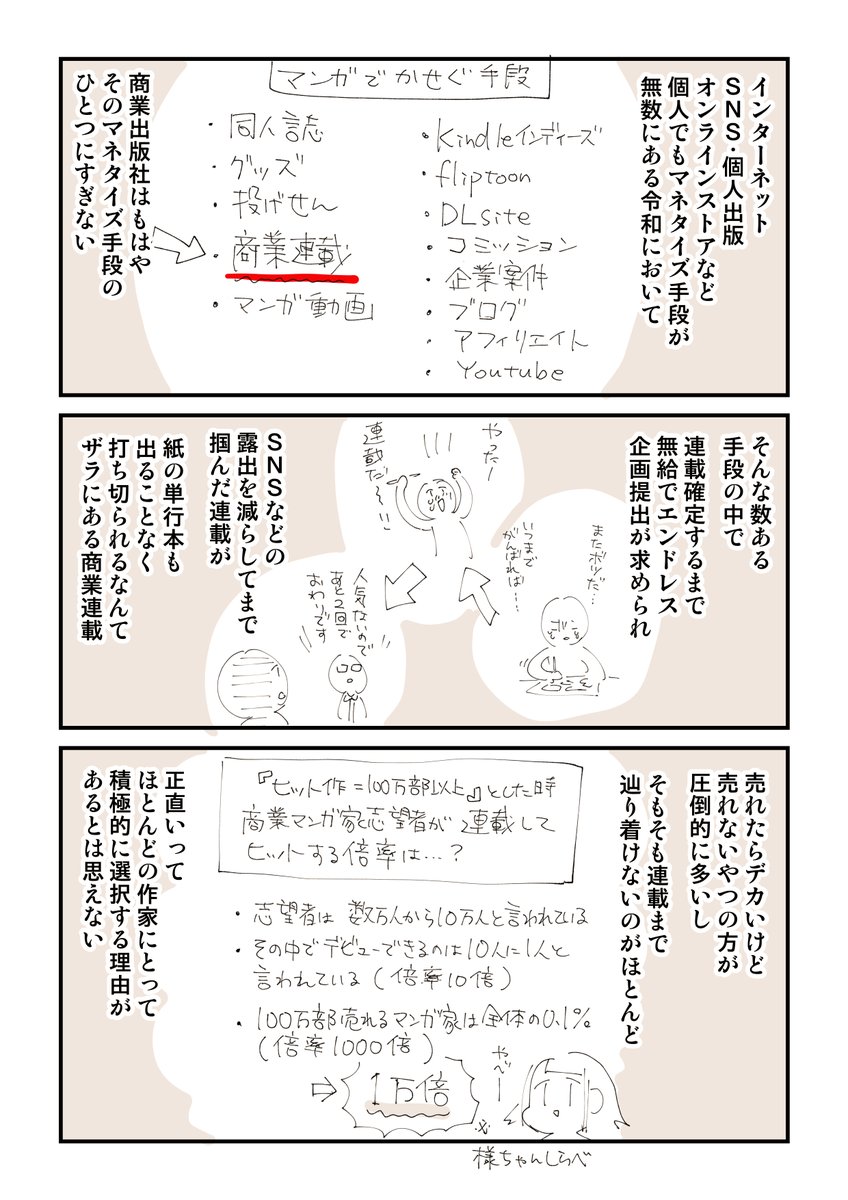 インターネット
SNS・個人出版
オンラインストアなど
個人でもマネタイズ手段が
無数にある令和において
マンガでかせぐ手段
・同人誌
・グッズ
・投げせん
・商業連載
・マンガ動画
・Kindleインディーズ
・fliptoon
・DLsite
・コミッション
・企業案件
・ブログ
・アフィリエイト
・Youtube
商業出版社はもはや
そのマネタイズ手段の
ひとつにすぎない
そんな数ある
手段の中で
連載確定するまで
無給でエンドレス
企画提出が求められ
またボツだ…
いつまで
がんばれば…
やったー
連載だ〜!!
人気ないので
あと2回で
おわりです
SNSなどの
露出を減らしてまで
掴んだ連載が
紙の単行本も
出ることなく
打ち切られるなんて
ザラにある商業連載
売れたらデカいけど
売れないやつの方が
圧倒的に多いし
そもそも連載まで
辿り着けないのがほとんど
『ヒット作=100万部以上』とした時
商業マンガ家志望者が連載して
ヒットする倍率は…?
・志望者は数万人から10万人と言われている
・その中でデビューできるのは10人に1人と
言われている(倍率10倍)
・100万部売れるマンガ家は全体の0.1%
(倍率1000倍)
⇒1万倍
やべー
※様ちゃんしらべ
正直いって
ほとんどの作家にとって
積極的に選択する理由が
あるとは思えない